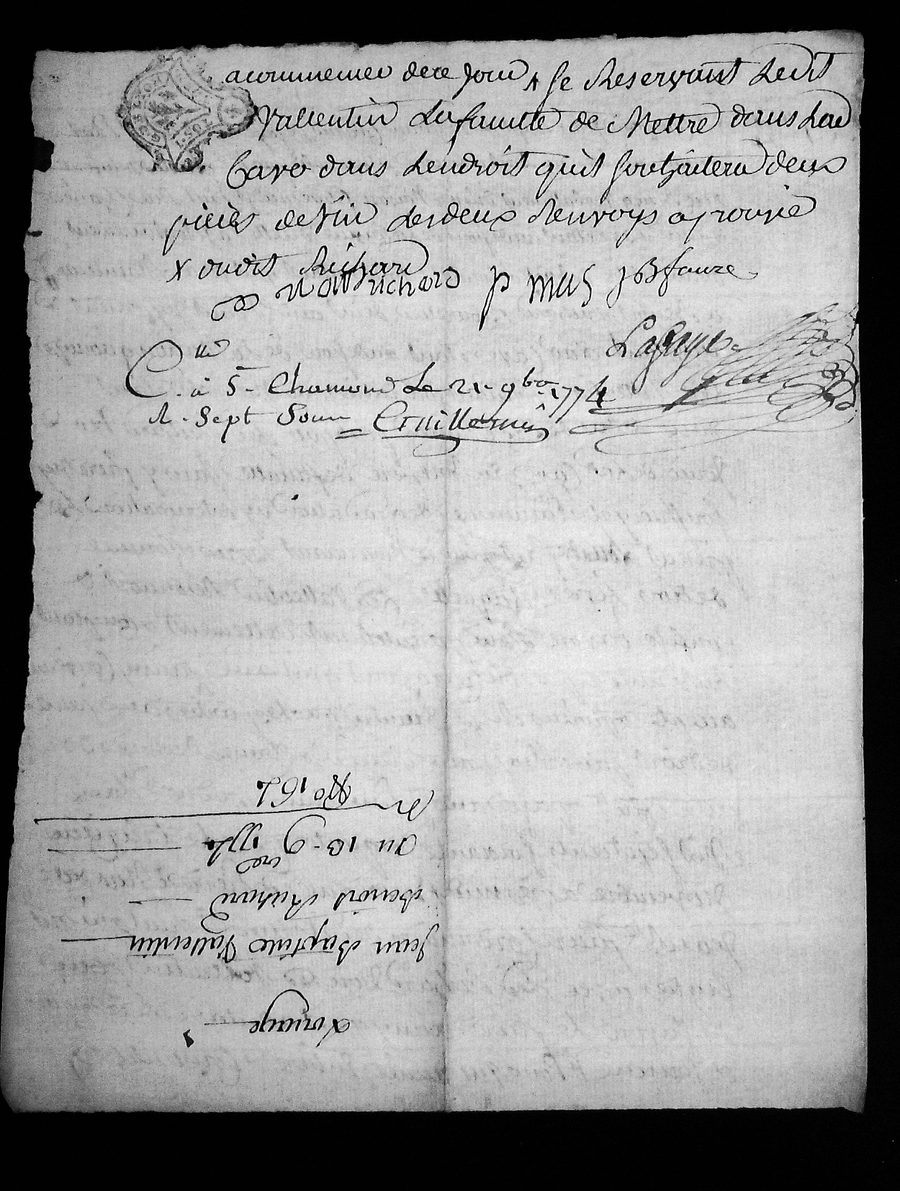 acommencer de ce jour x se Reservant Ledit
Vallentin La faculte de Mettre dans Lad
Cave dans Lendroit quil souhaitera deux
pieces de vin Lesdeux Renvoys aprouvé
x dudit Richard
n oitt richard p mas jb faure
Lafaye
C. lle
à St Chamond Le 21. 9bre. 1774
R. Sept Sous
Louage
Jean Baptiste Vallentin
Benoist Richard
Du 13. 9bre 1774
No 162